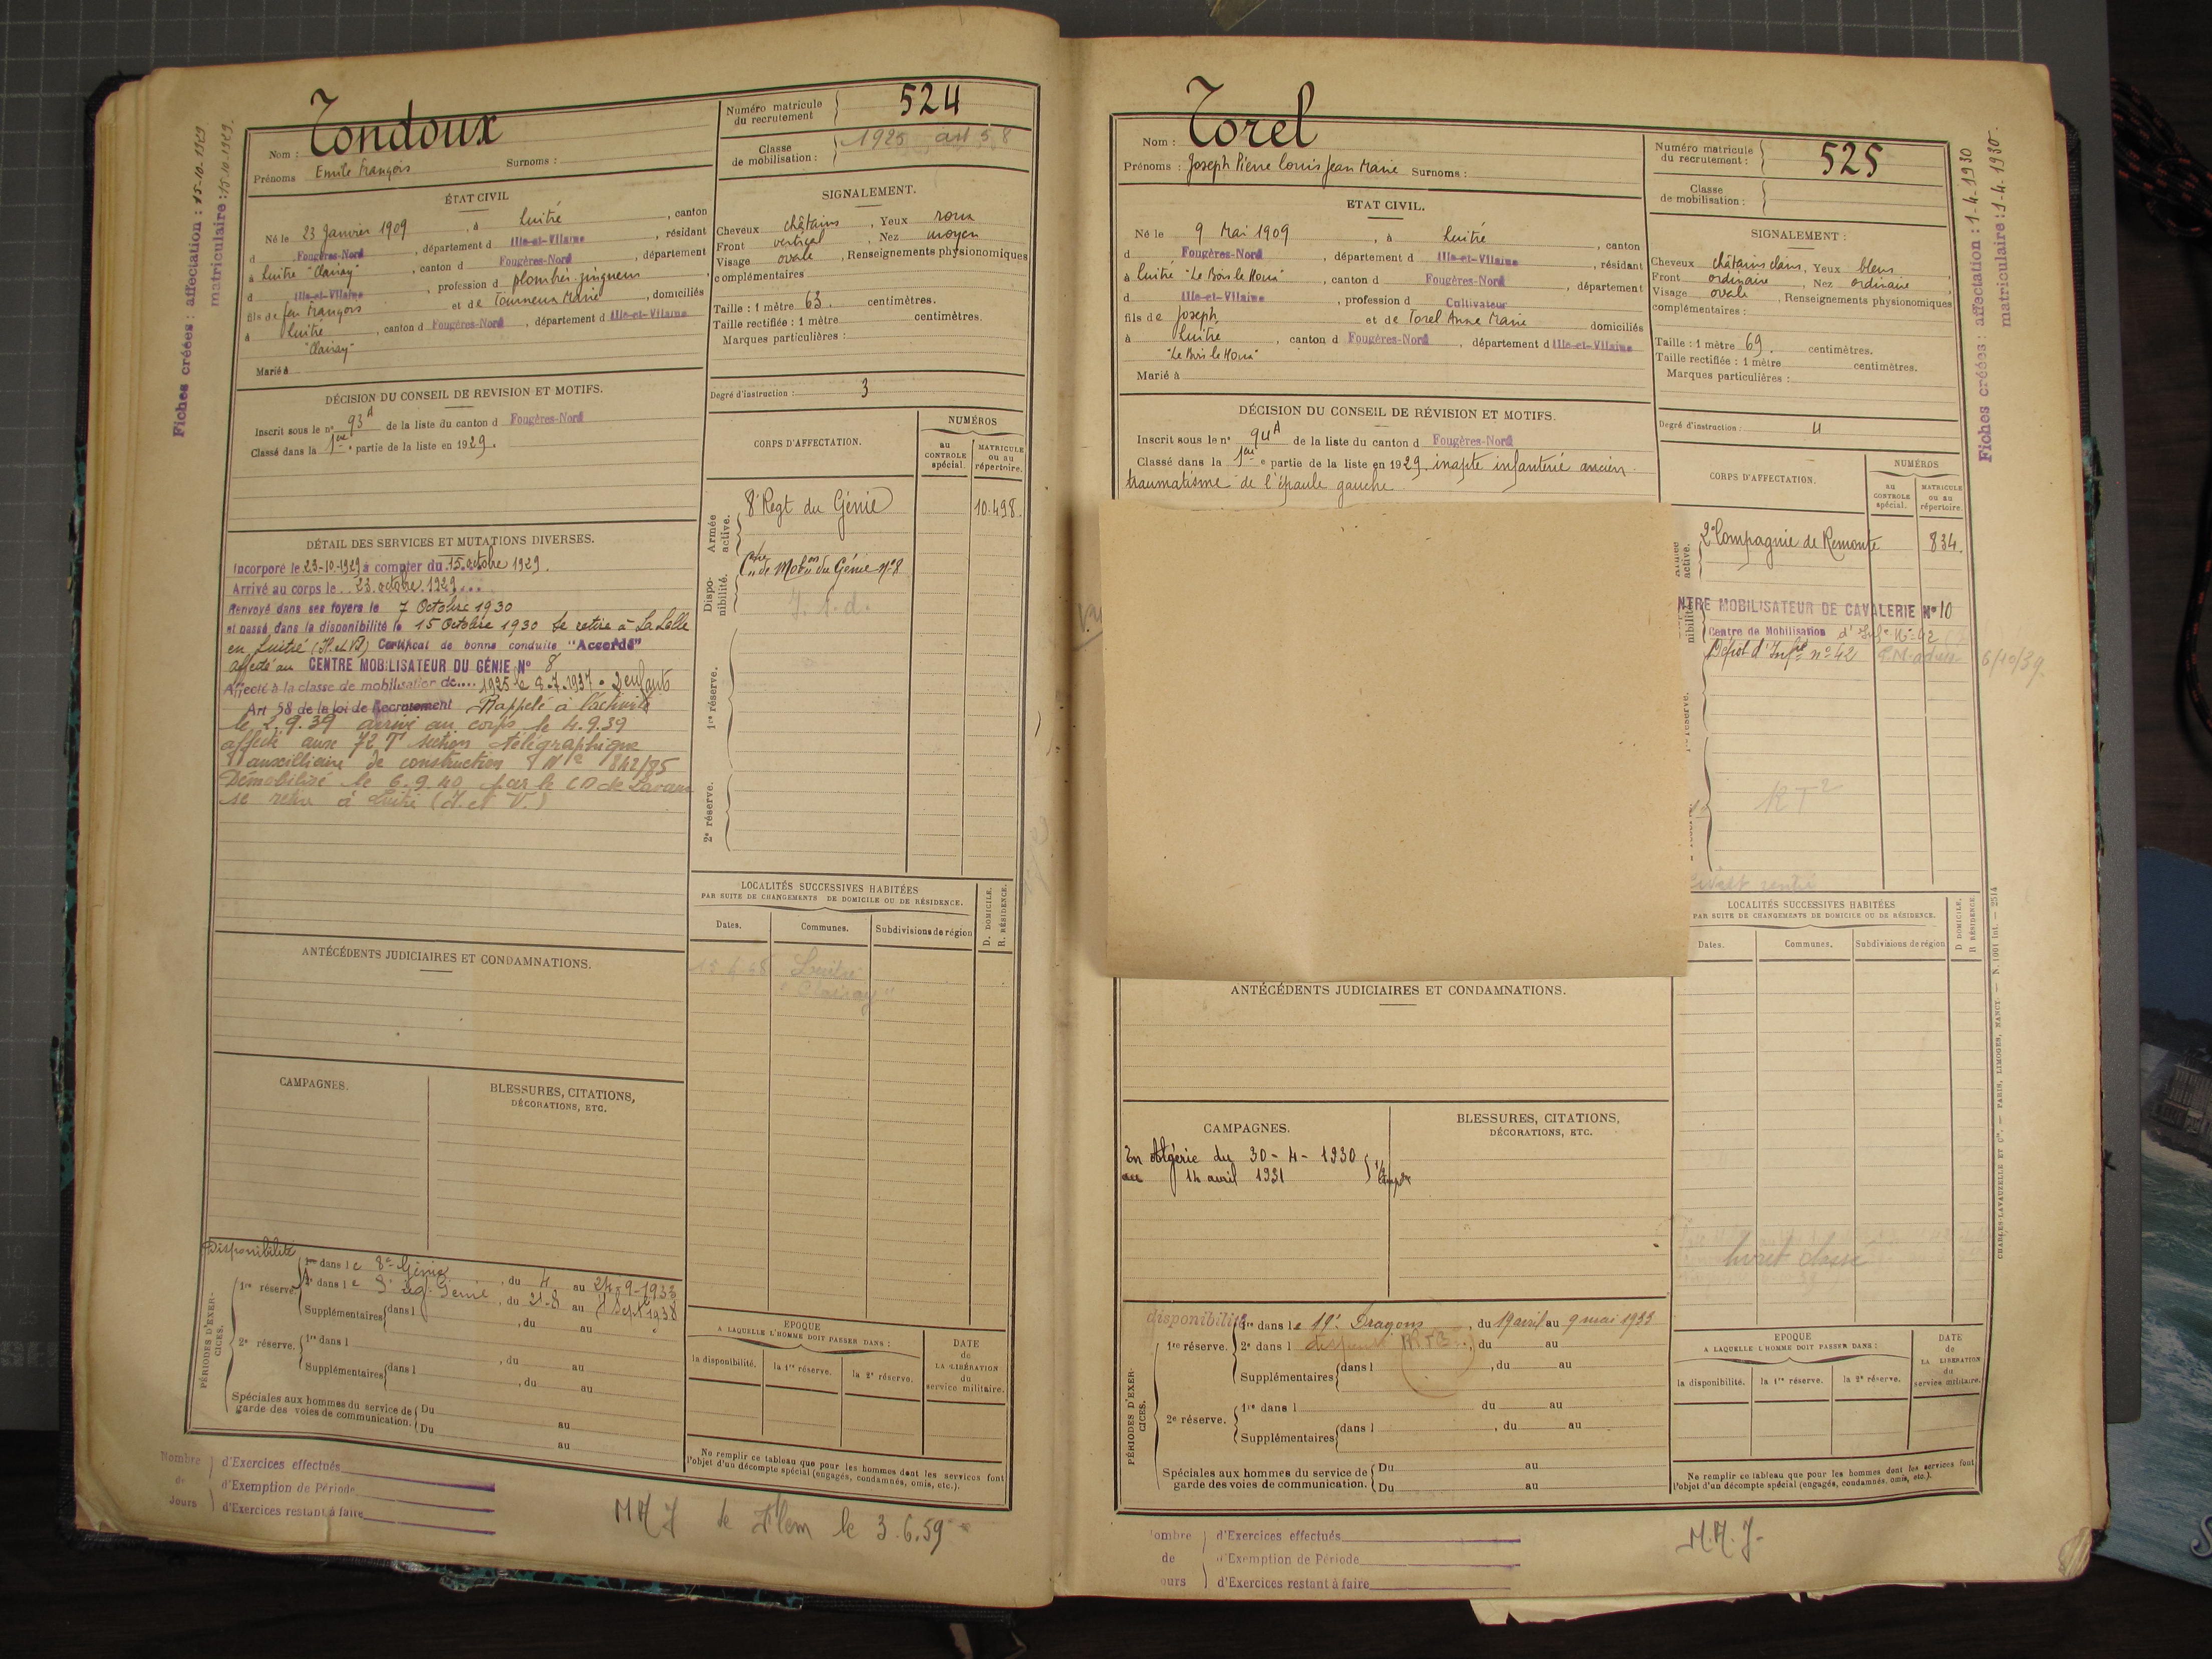 Fiches créées : affectation : 15-10-1929
matriculaire : 15.10.1929.
Nom : Tondoux
Prénoms Emile François Surnoms :
Numéro matricule du recrutement 524
Classe de mobilisation : 1925 art 58
ÉTAT CIVIL
Né le 23 Janvier 1909, à Luitré, canton
d Fougères-Nord, département d Ille-et-Vilaine, résidant
à Luitré "Clairay", canton d Fougères-Nord, département
d Ille-et-Vilaine, profession d plombier-zingueur
fils de feu François et de Tourneux Marie, domiciliés
à Luitré, canton d Fougères-Nord, département d Ille-et-Vilaine
"Clairay"
Marié à
SIGNALEMENT.
Cheveux châtains, Yeux roux
Front vertical, Nez moyen
Visage ovale, Renseignements physionomiques
complémentaires
Taille : 1 mètre 63. centimètres.
Taille rectifiée : 1 mètre centimètres.
Marques particulières :
Degré d'instruction : 3
DÉCISION DU CONSEIL DE REVISION ET MOTIFS.
Inscrit sous le n° 93 A de la liste du canton d Fougères-Nord
Classé dans la 1ère partie de la liste en 1929.
CORPS D'AFFECTATION.
NUMÉROS
au CONTROLE spécial.
MATRICULE ou au répertoire.
Armée active.
8e Regt du Génie 10.498.
Disponibilité.
Ctre de Mobon du Génie n°8
1re réserve.
2e réserve.
DÉTAIL DES SERVICES ET MUTATIONS DIVERSES.
Incorporé le 23-10-1929 à compter du 15 octobre 1929.
Arrivé au corps le 23 octobre 1929...
Renvoyé dans ses foyers le 7 Octobre 1930
et passé dans la disponibilité le 15 Octobre 1930 se retire à La Lalle
en Luitré (I. et V.) Certificat de bonne conduite "Accordé"
affecté au CENTRE MOBILISATEUR DU GÉNIE N° 8
Affecté à la classe de mobilisation de.... 1925 le 8.7.1937. 2 enfants
Art 58 de la loi de Recrutement Rappelé à l'activité
le 2.9.39 arrivé au corps le 4.9.39
affecté aux 72 T section télégraphique
auxilliaire de construction N° 842/85
Démobilisé le 6.9.40 par le CD de
se retire à Luitré (I. et V.)
LOCALITÉS SUCCESSIVES HABITÉES
PAR SUITE DE CHANGEMENTS DE DOMICILE OU DE RÉSIDENCE.
Dates.
Communes.
Subdivisions de région
D. DOMICILE.
R. RÉSIDENCE.
Luitré
"Clairay"
ANTÉCÉDENTS JUDICIAIRES ET CONDAMNATIONS.
CAMPAGNES.
BLESSURES, CITATIONS,
DÉCORATIONS, ETC.
PÉRIODES D'EXERCICES.
Disponibilité
1re réserve.
1re dans le 8e Génie, du 4 au 24-9-1933
2e dans le 8e reg. Génie, du 21-8 au 8 Sept 1938
Supplémentaires dans l
, du au
2e réserve. 1re dans l
, du au
Supplémentaires dans l
, du au
Spéciales aux hommes du service de garde des voies de communication.
Du au
Du au
EPOQUE
A LAQUELLE L'HOMME DOIT PASSER DANS :
la disponibilité.
la 1re réserve.
la 2e réserve.
DATE de LA LIBÉRATION du service militaire.
Ne remplir ce tableau que pour les hommes dont les services font
l'objet d'un décompte spécial (engagés, condamnés, omis, etc.).
Nombre de Jours
d'Exercices effectués
d'Exemption de Période
d'Exercices restant à faire
le 3.6.59
Nom : Torel
Prénoms : Joseph Pierre Louis Jean Marie Surnoms :
Numéro matricule du recrutement : 525
Classe de mobilisation :
Fiches créées : affectation : 1-4-1930
matriculaire : 1-4-1930.
ETAT CIVIL.
Né le 9 Mai 1909, à Luitré, canton
d Fougères-Nord, département d Ille-et-Vilaine, résidant
à Luitré "Le Bois le Houx", canton d Fougères-Nord, département
d Ille-et-Vilaine, profession d Cultivateur
fils de Joseph et de Torel Anne Marie domiciliés
à Luitré, canton d Fougères-Nord, département d Ille-et-Vilaine
"Le Bois le Houx"
Marié à
SIGNALEMENT :
Cheveux châtains clairs, Yeux bleus
Front ordinaire, Nez ordinaire
Visage ovale, Renseignements physionomiques
complémentaires :
Taille : 1 mètre 69. centimètres.
Taille rectifiée : 1 mètre centimètres.
Marques particulières :
Degré d'instruction : 4
DÉCISION DU CONSEIL DE RÉVISION ET MOTIFS.
Inscrit sous le n° 94 A de la liste du canton d Fougères-Nord
Classé dans la 1ère partie de la liste en 1929. inapte infanterie ancien
traumatisme de l'épaule gauche.
CORPS D'AFFECTATION.
NUMÉROS
au CONTROLE spécial.
MATRICULE ou au répertoire.
2e Compagnie de Remonte 834.
NTRE MOBILISATEUR DE CAVALERIE N° 10
Centre de Mobilisation d'Infie N° 42
Dépôt d'Infie n° 42
6/10/39.
LOCALITÉS SUCCESSIVES HABITÉES
PAR SUITE DE CHANGEMENTS DE DOMICILE OU DE RÉSIDENCE.
Dates.
Communes.
Subdivisions de région
D DOMICILE.
R RÉSIDENCE.
livret classé
ANTÉCÉDENTS JUDICIAIRES ET CONDAMNATIONS.
CAMPAGNES.
En Algérie du 30-4-1930
au 14 avril 1931
BLESSURES, CITATIONS,
DÉCORATIONS, ETC.
PÉRIODES D'EXERCICES.
disponibilité
1re réserve.
1re dans le 19e Dragons, du 19 avril au 9 mai 1933
2e dans l du au
Supplémentaires dans l
, du au
2e réserve. 1re dans l
du au
Supplémentaires dans l
, du au
Spéciales aux hommes du service de garde des voies de communication.
Du au
Du au
EPOQUE
A LAQUELLE L'HOMME DOIT PASSER DANS :
la disponibilité.
la 1re réserve.
la 2e réserve.
DATE de LA LIBERATION du service militaire.
Ne remplir ce tableau que pour les hommes dont les services font
l'objet d'un décompte spécial (engagés, condamnés, omis, etc.).
CHARLES-LAVAUZELLE ET Cie. — PARIS, LIMOGES, NANCY. — N. 1001 Int. — 2514
ombre de ours
d'Exercices effectués
d'Exemption de Période
d'Exercices restant à faire